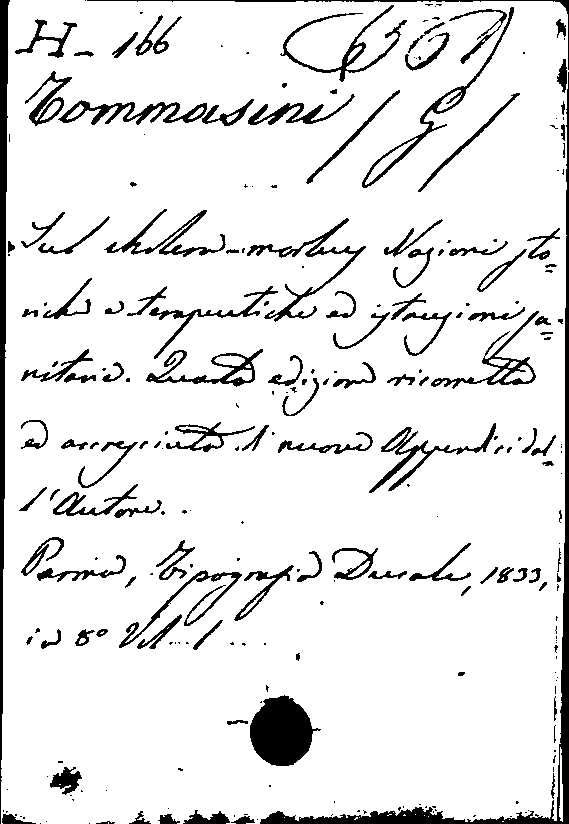 H- 166 (661)
Tommasini /G/
Sul cholera-morbus Nozioni sto=
riche e terapeutiche ed istruzioni sa=
nitarie. Quarta edizione ricorretta
ed accresciuta di nuove Appendici dal=
l'Autore.
Parma, Tipografia Ducale, 1833,
in 8° Vol. 1